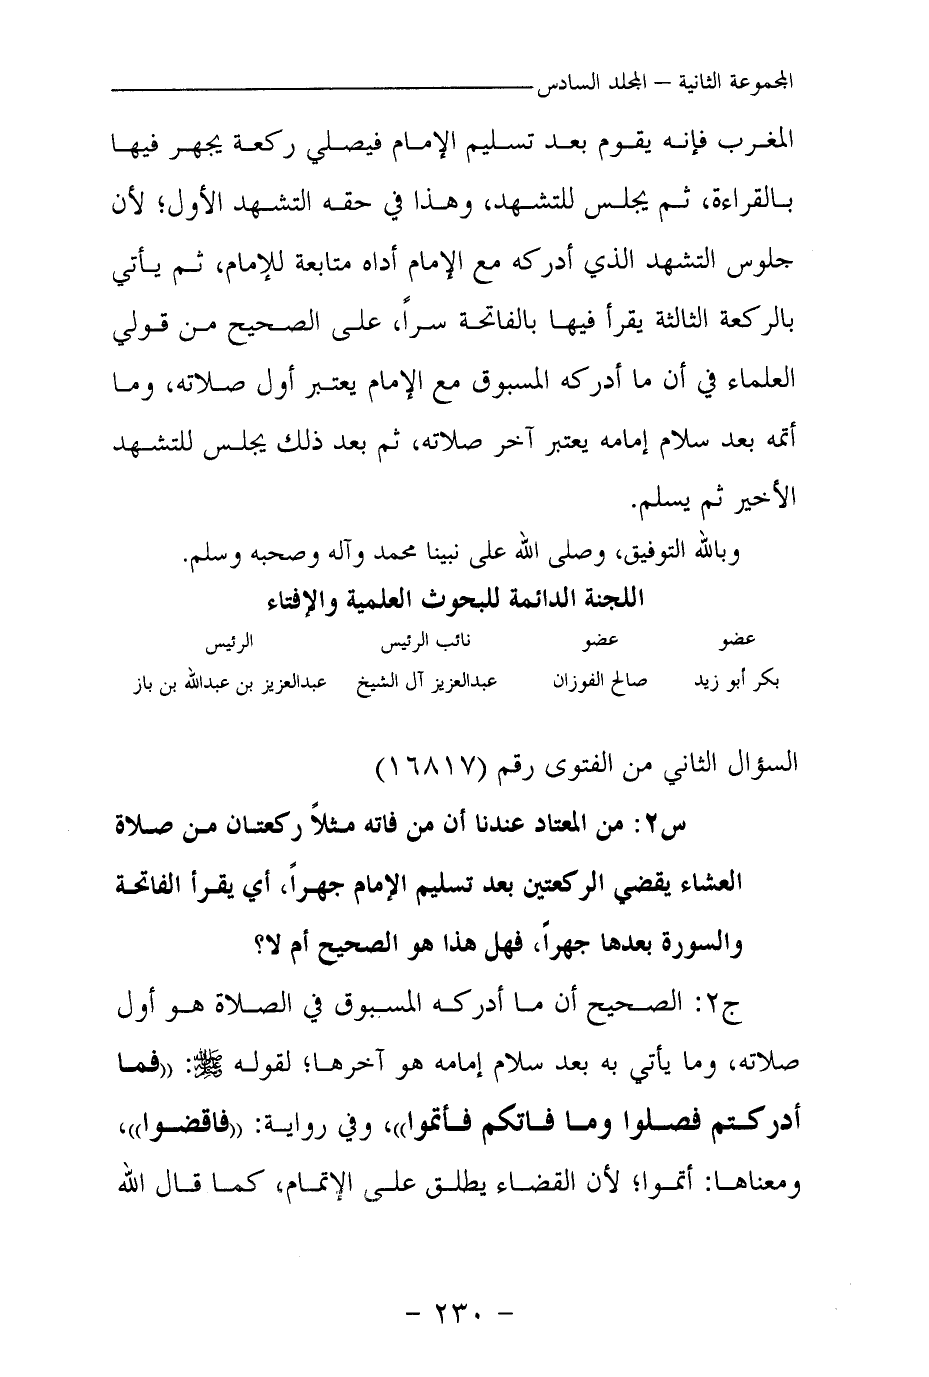 المجموعة الثانية – المجلد السادس
المغرب فإنه يقوم بعد تسليم الإمام فيصلي ركعة يجهر فيها
بالقراءة، ثم يجلس للتشهد، وهذا في حقه التشهد الأول؛ لأن
جلوس التشهد الذي أدركه مع الإمام أداه متابعة للإمام، ثم يأتي
بالركعة الثالثة يقرأ فيها بالفاتحة سراً، على الصحيح من قولي
العلماء في أن ما أدركه المسبوق مع الإمام يعتبر أول صلاته، وما
أتمه بعد سلام إمامه يعتبر آخر صلاته، ثم بعد ذلك يجلس للتشهد
الأخير ثم يسلم.
وبالله التوفيق، وصلى الله على نبينا محمد وآله وصحبه وسلم.
اللجنة الدائمة للبحوث العلمية والإفتاء
عضو عضو نائب الرئيس الرئيس
بكر أبو زيد صالح الفوزان عبدالعزيز آل الشيخ عبدالعزيز بن عبدالله بن باز
السؤال الثاني من الفتوى رقم (١٦٨١٧)
س٢: من المعتاد عندنا أن من فاته مثلاً ركعتان من صلاة
العشاء يقضي الركعتين بعد تسليم الإمام جهراً، أي يقرأ الفاتحة
والسورة بعدها جهراً، فهل هذا هو الصحيح أم لا؟
ج٢: الصحيح أن ما أدركه المسبوق في الصلاة هو أول
صلاته، وما يأتي به بعد سلام إمامه هو آخرها؛ لقوله ﷺ: ((فما
أدركتم فصلوا وما فاتكم فأتموا))، وفي رواية: ((فاقضوا))،
ومعناها: أتموا؛ لأن القضاء يطلق على الإتمام، كما قال الله
– ٢٣٠ –